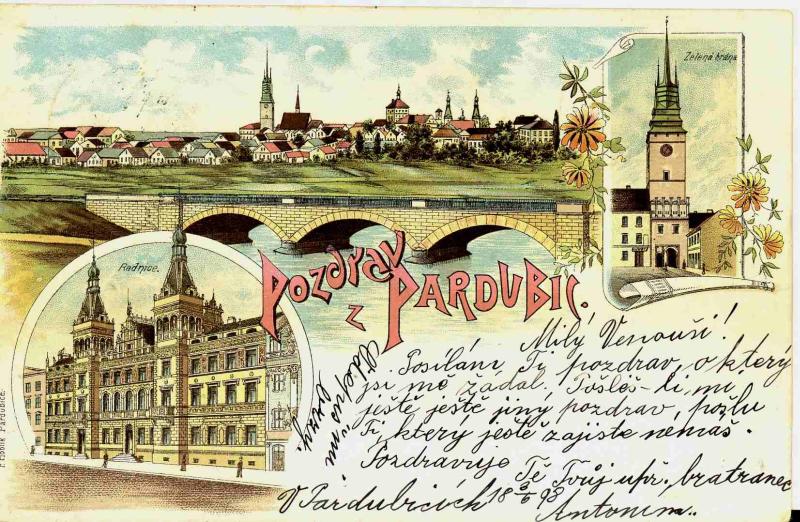 Zelená brána
Radnice.
Pozdrav
z Pardubic.
Milý Venouši!
Posílám Ti pozdrav, o který
jsi mě žádal. Pošleš-li mi
ještě ještě jiný pozdrav, pošlu
Ti, který ještě zajiste nemáš.
Pozdravuje Tě Tvůj upř. bratranec
V Pardubicích 18 3/6 98
Antonín.
Odepiš mi
brzy.
PARDUBICE.